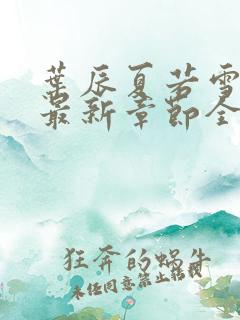 葉辰夏若雪
最新章節全
狂奔的蝸牛
未经同意禁止转载